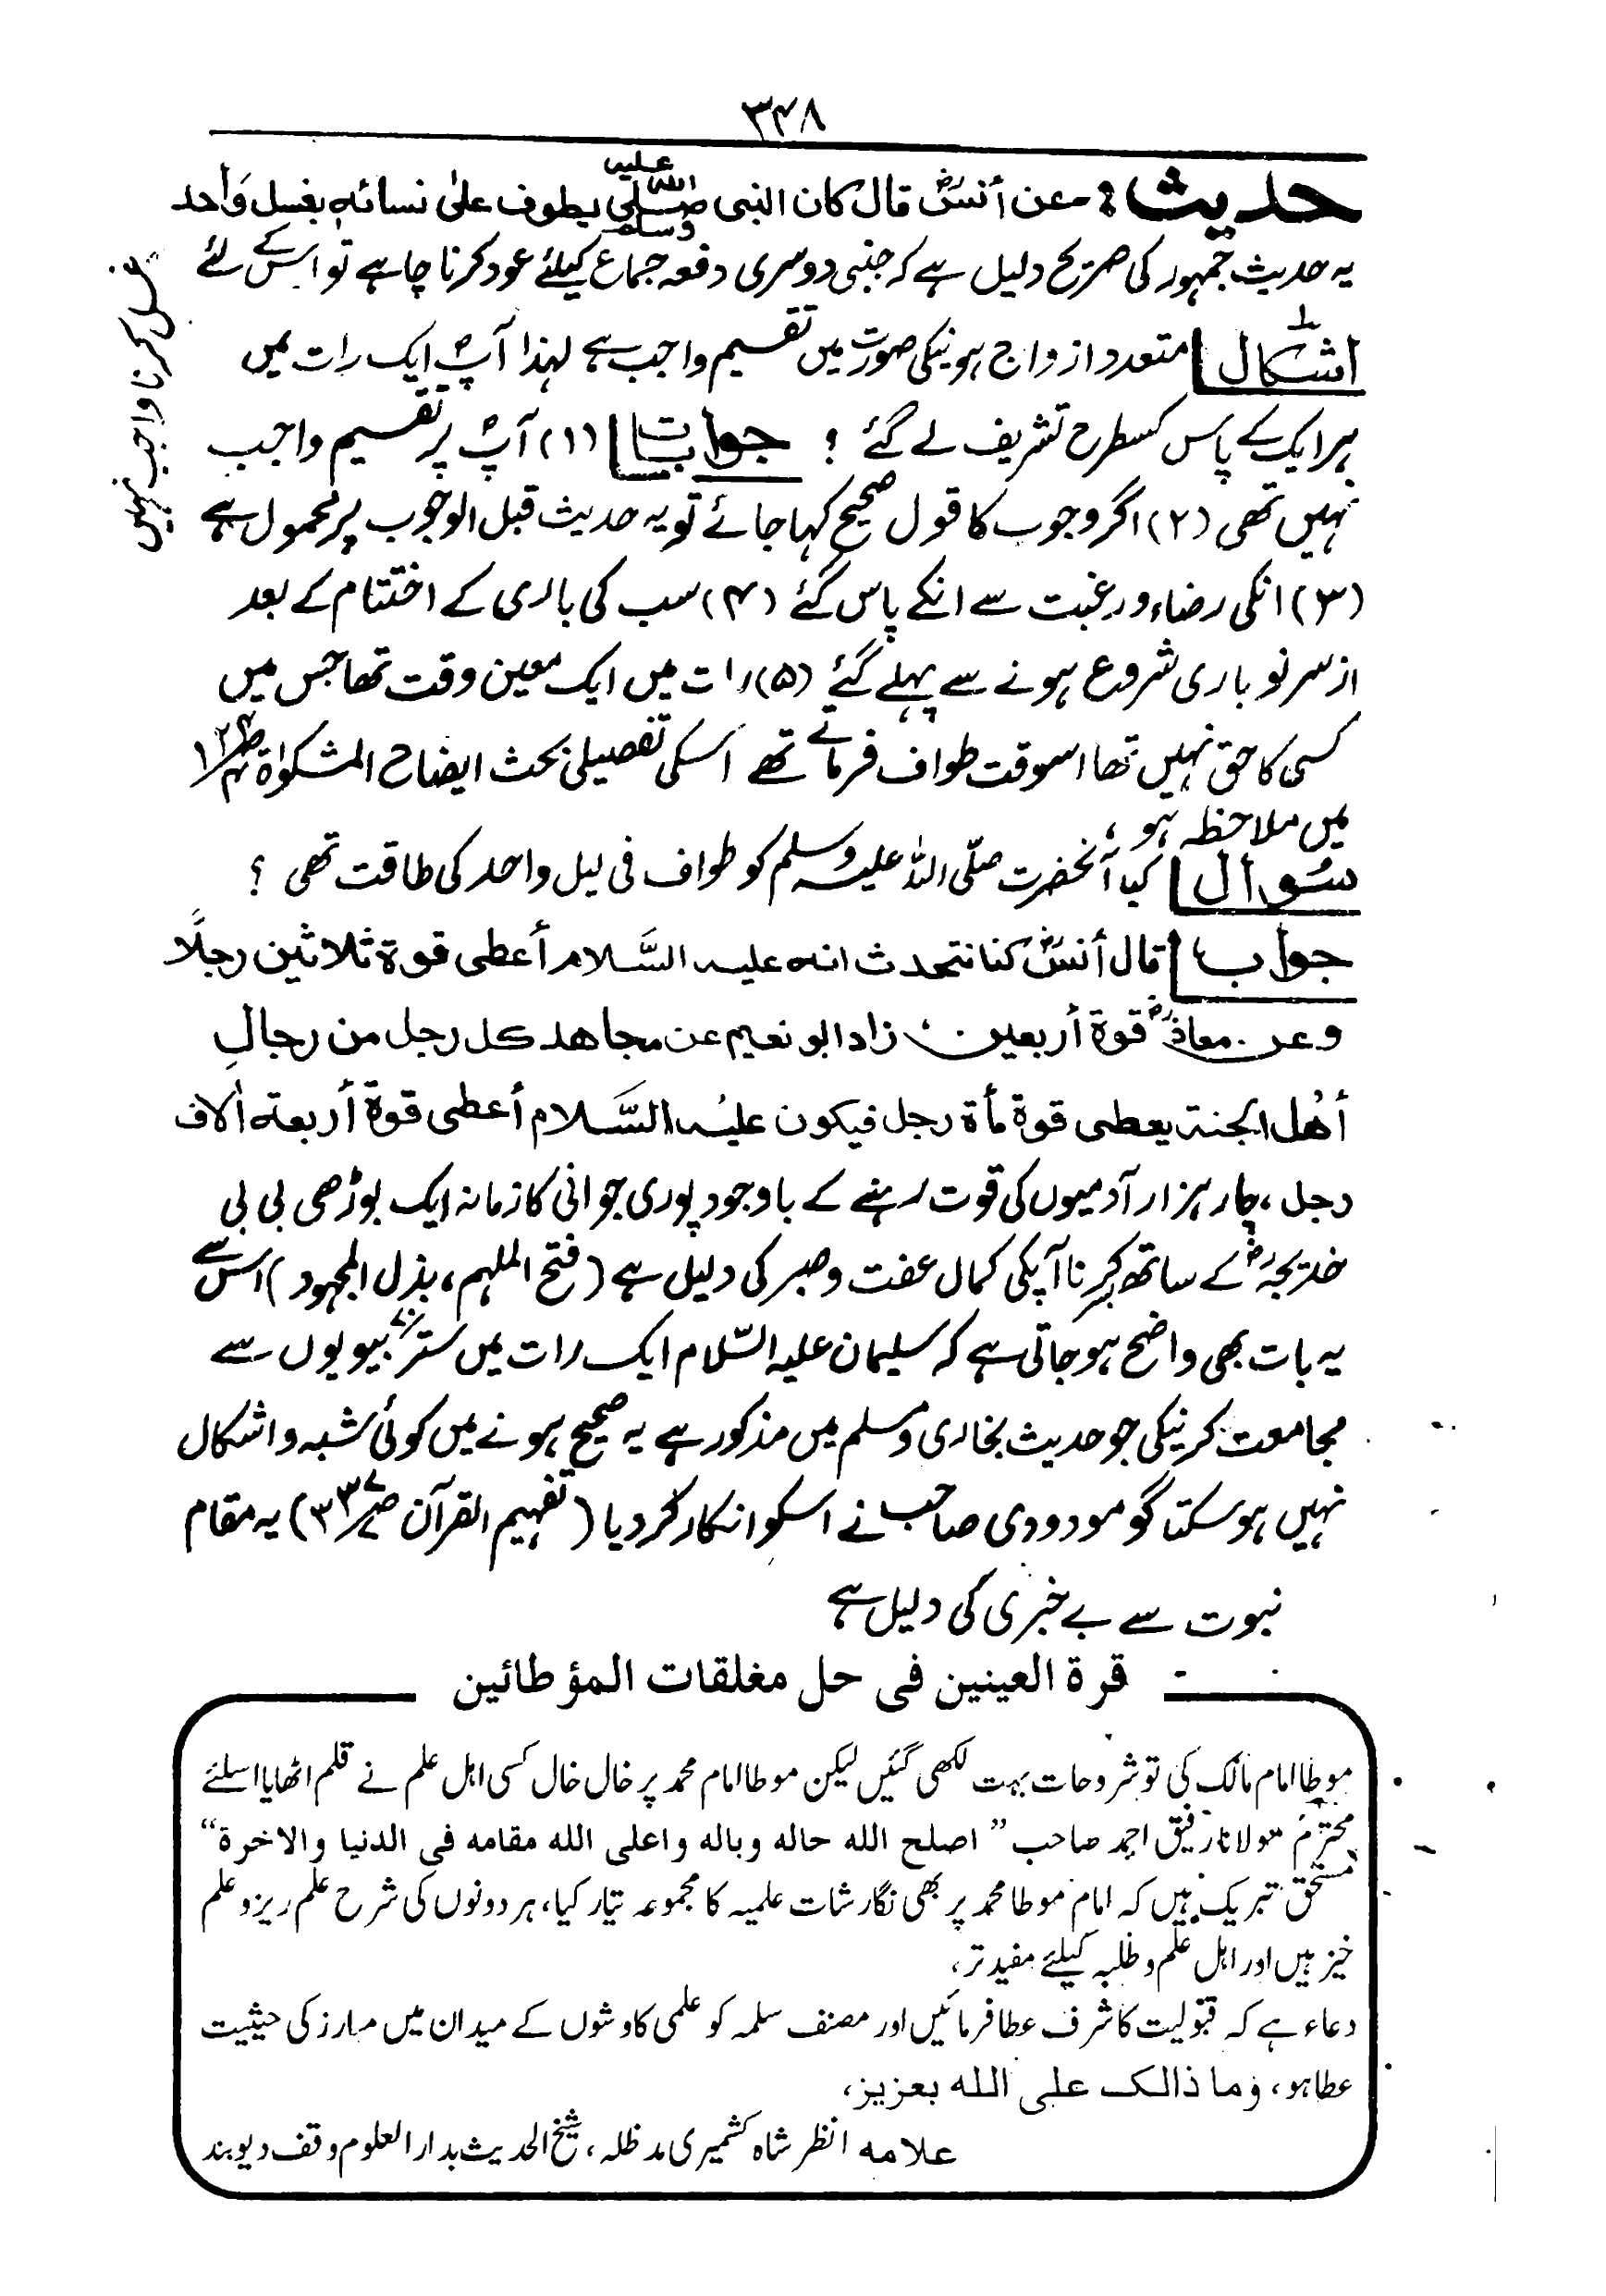 ۳۴۸
حدیث: عن أنسؓ قال کان النبی صلی اللہ علیہ وسلم یطوف علیٰ نسائہٖ بغسل وَاحد
یہ حدیث جمہور کی صریح دلیل ہے کہ جنبی دوسری دفعہ جماع کیلئے عود کرنا چاہے تو اس کے لئے
غسل کرنا واجب نہیں
اشکال متعدد ازواج ہونیکی صورت میں تقسیم واجب ہے لہذا آپؐ ایک رات میں
ہر ایک کے پاس کسطرح تشریف لے گئے ؟ جوابات (۱) آپؐ پر تقسیم واجب
نہیں تھی (۲) اگر وجوب کا قول صحیح کہا جائے تو یہ حدیث قبل الوجوب پر محمول ہے
(۳) انکی رضاء ورغبت سے انکے پاس گئے (۴) سب کی باری کے اختتام کے بعد
از سر نو باری شروع ہونے سے پہلے گئے (۵) رات میں ایک معین وقت تھا جس میں
کسی کا حق نہیں تھا اسوقت طواف فرماتے تھے اسکی تفصیلی بحث ایضاح المشکوٰۃ
میں ملاحظہ ہو ،
سُوال کیا آنحضرت صلّی اللہ علیہ وسلم کو طواف فی لیل واحد کی طاقت تھی ؟
جواب قال أنسؓ کنا نتحدث انہ علیہ السَّلام أعطی قوۃ ثلاثین رجلًا
وعن معاذؓ قوۃ أربعین، زاد ابو نعیم عن مجاهد کل رجل من رجالِ
أهل الجنۃ یعطی قوۃ مأۃ رجل فیکون علیہ السَّلام أعطی قوۃ أربعۃ اٰلاف
رجل ، چار ہزار آدمیوں کی قوت رہنے کے باوجود پوری جوانی کا زمانہ ایک بوڑھی بی بی
خدیجہؓ کے ساتھ بسر کرنا آپکی کمال عفت وصبر کی دلیل ہے (فتح الملہم ، بذل المجہود) اس سے
یہ بات بھی واضح ہو جاتی ہے کہ سلیمان علیہ السّلام ایک رات میں ستر بیویوں سے
مجامعت کرنیکی جو حدیث بخاری ومسلم میں مذکور ہے یہ صحیح ہونے میں کوئی شبہ و اشکال
نہیں ہو سکتا گو مودودی صاحب نے اسکو انکار کر دیا (تفہیم القرآن) یہ مقام
نبوت سے بے خبری کی دلیل ہے
قرة العینین فی حل مغلقات المؤطائین
موطا امام مالک کی تو شروحات بہت لکھی گئیں لیکن موطا امام محمد پر خال خال کسی اہل علم نے قلم اٹھایا اسلئے
محترم مولانا رفیق احمد صاحب ” اصلح الله حاله وباله واعلی الله مقامه فی الدنیا والاخرة“
مستحق تبریک ہیں کہ امام موطا محمد پر بھی نگارشات علمیہ کا مجموعہ تیار کیا، ہر دونوں کی شرح علم ریز و علم
خیز ہیں اور اہل علم و طلبہ کیلئے مفید تر،
دعاء ہے کہ قبولیت کا شرف عطا فرمائیں اور مصنف سلمہ کو علمی کاوشوں کے میدان میں مبارز کی حیثیت
عطا ہو، وما ذالک علی الله بعزیز،
علامہ انظر شاہ کشمیری مدظلہ، شیخ الحدیث بدار العلوم وقف دیوبند